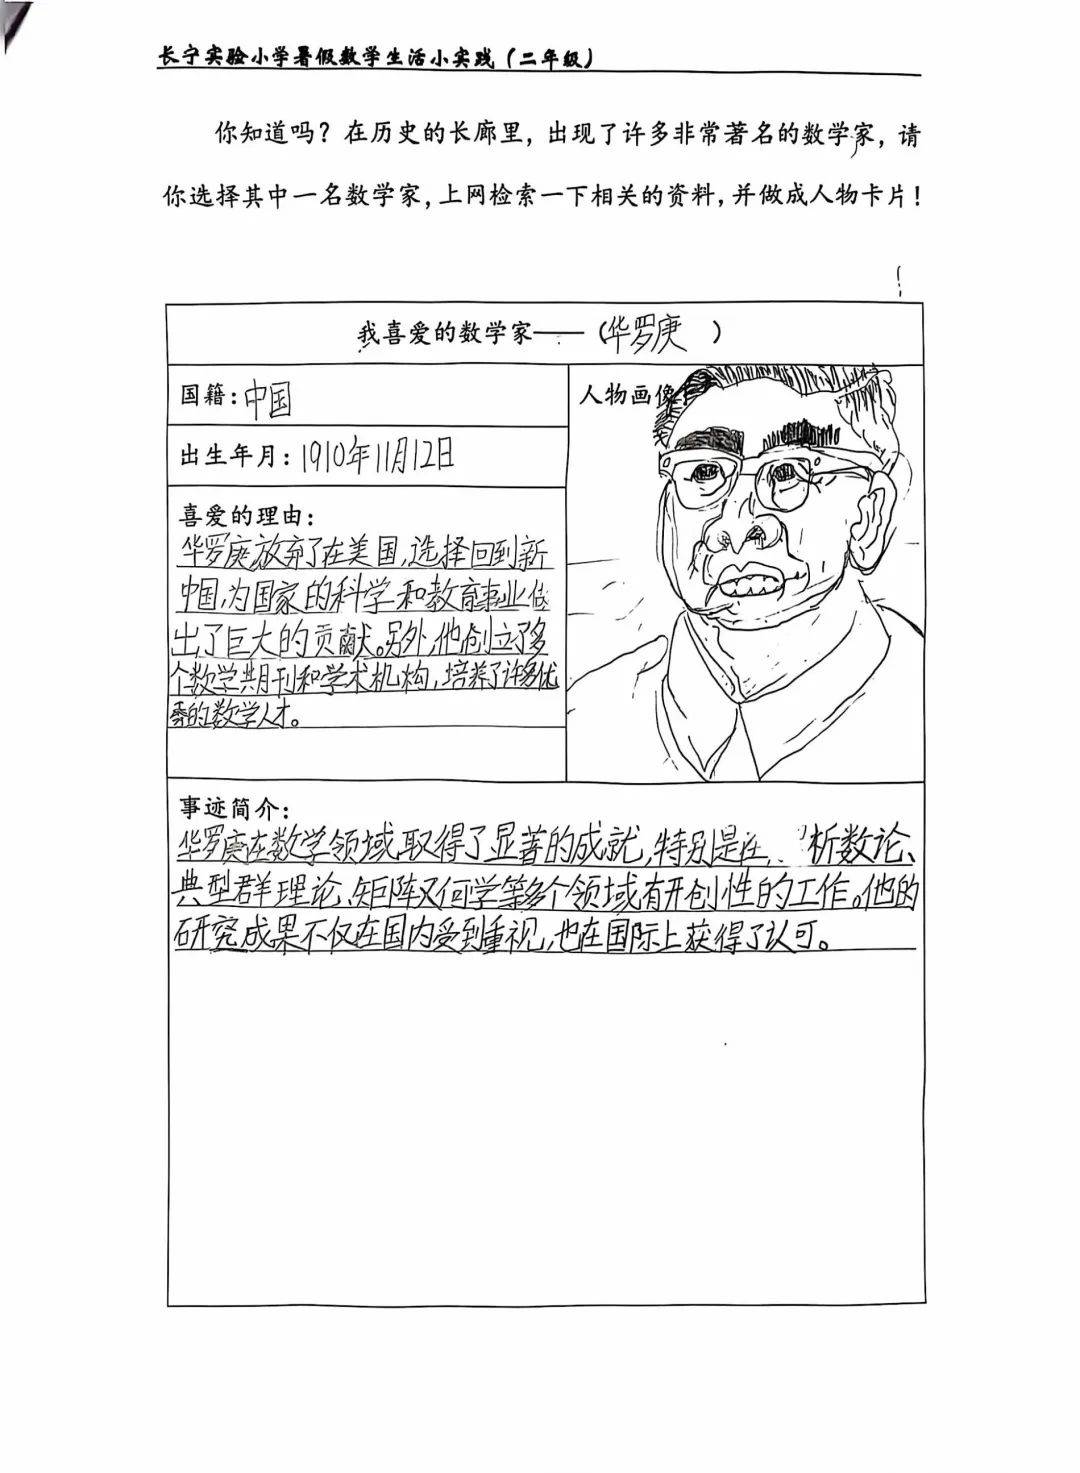 长宁实验小学暑假数学生活小实践（二年级）
你知道吗？在历史的长廊里，出现了许多非常著名的数学家，请
你选择其中一名数学家，上网检索一下相关的资料，并做成人物卡片！
我喜爱的数学家——（华罗庚 ）
国籍：中国
人物画像
出生年月：1910年11月12日
喜爱的理由：
华罗庚放弃了在美国，选择回到新
中国，为国家的科学和教育事业做
出了巨大的贡献。另外，他创立了多
个数学期刊和学术机构，培养了许多优
秀的数学人才。
事迹简介：
华罗庚在数学领域取得了显著的成就，特别是在 析数论、
典型群理论、矩阵几何学等多个领域有开创性的工作。他的
研究成果不仅在国内受到重视，也在国际上获得了认可。